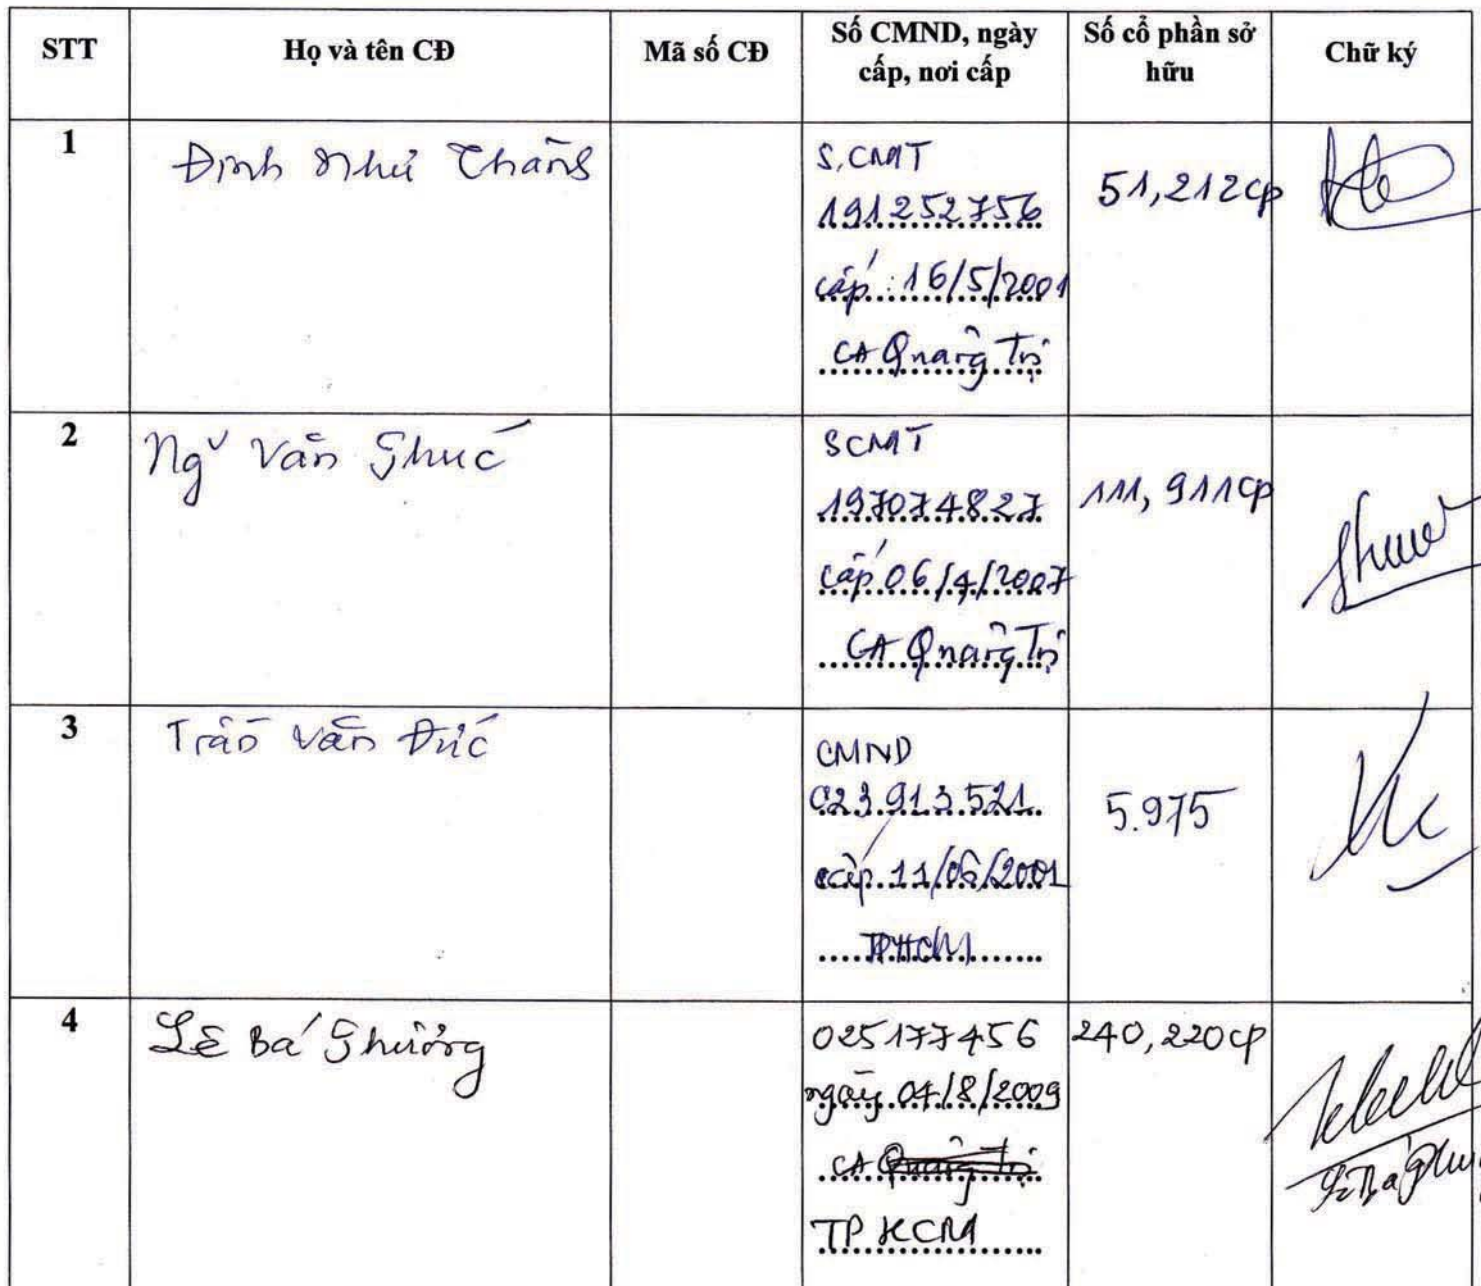 STT Họ và tên CĐ Mã số CĐ Số CMND, ngày cấp, nơi cấp Số cổ phần sở hữu Chữ ký
1 Đinh Như Thăng
S.CMT
191252756
cấp: 16/5/2001
CA Quảng Trị
51,212cp
2 Ng~ Văn Phúc
SCMT
197074827
cấp 06/4/2007
CA Quảng Trị
111,911cp
3 Trần Văn Đức
CMND
023.913.521
cấp 11/06/2001
TPHCM
5.975
4 Lê Bá Phương
025177456
ngày 04/8/2009
CA Quảng Trị
TP HCM
240,220cp